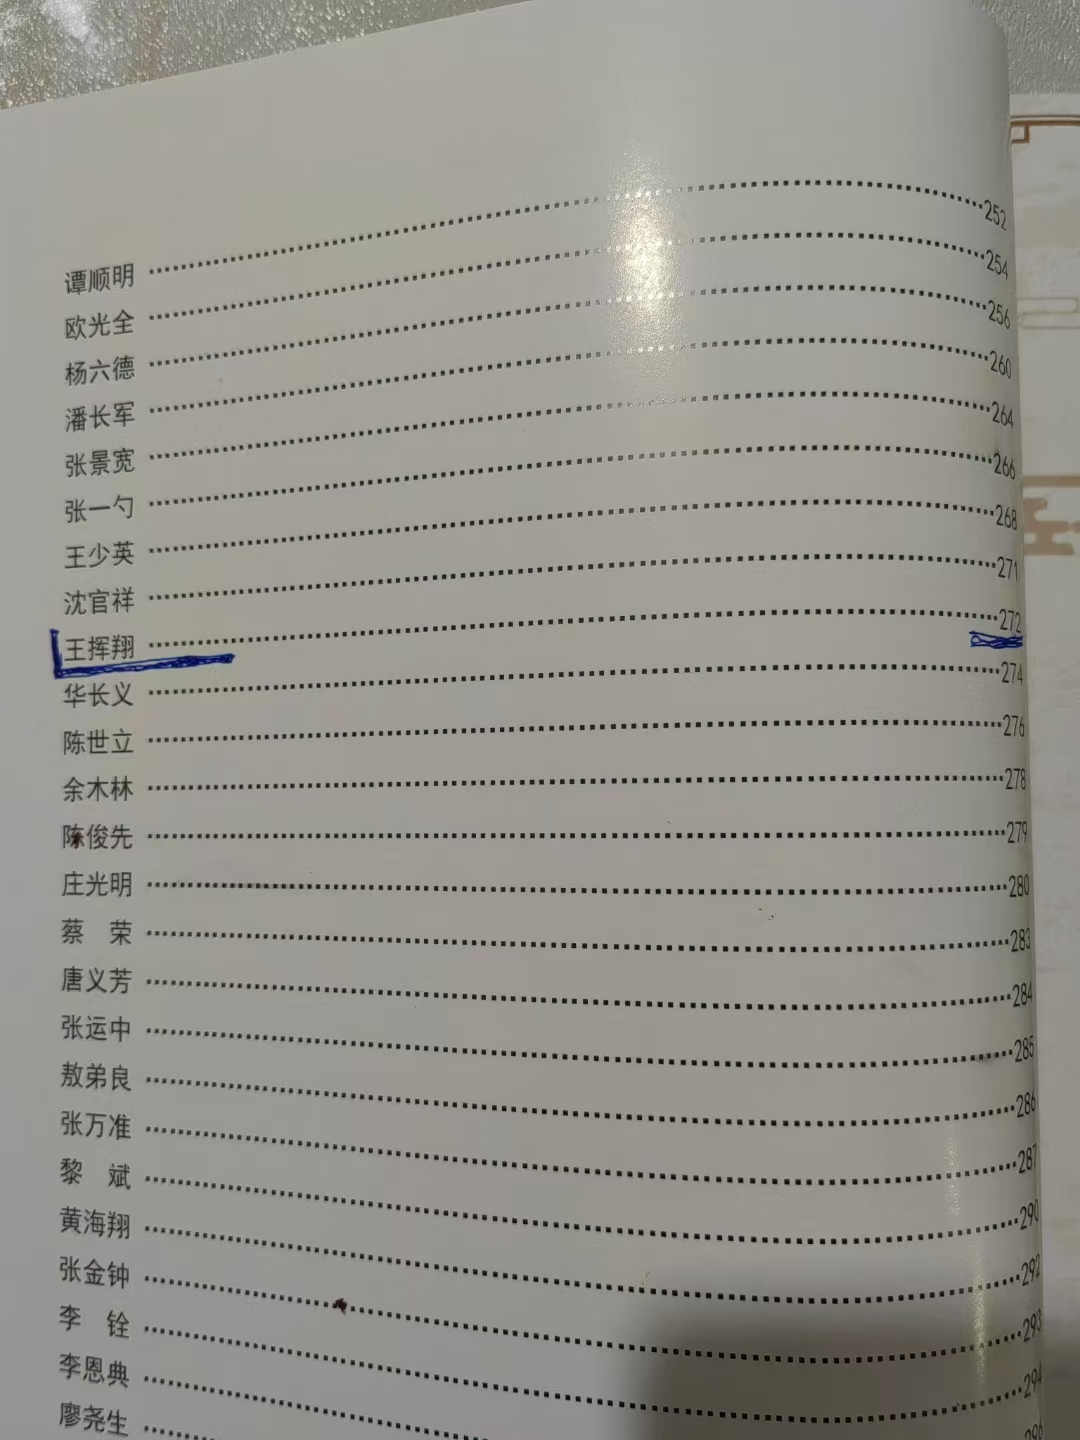 谭顺明 ································ 252
欧光全 ································ 254
杨六德 ································ 256
潘长军 ································ 260
张景宽 ································ 264
张一勺 ································ 266
王少英 ································ 268
沈官祥 ································ 271
王挥翔 ································ 272
华长义 ································ 274
陈世立 ································ 276
余木林 ································ 278
陈俊先 ································ 279
庄光明 ································ 280
蔡　荣 ································ 283
唐义芳 ································ 284
张运中 ································ 285
敖弟良 ································ 286
张万准 ································ 287
黎　斌 ································ 290
黄海翔 ································ 292
张金钟 ································ 293
李　铨 ································ 294
李恩典 ································ 296
廖尧生